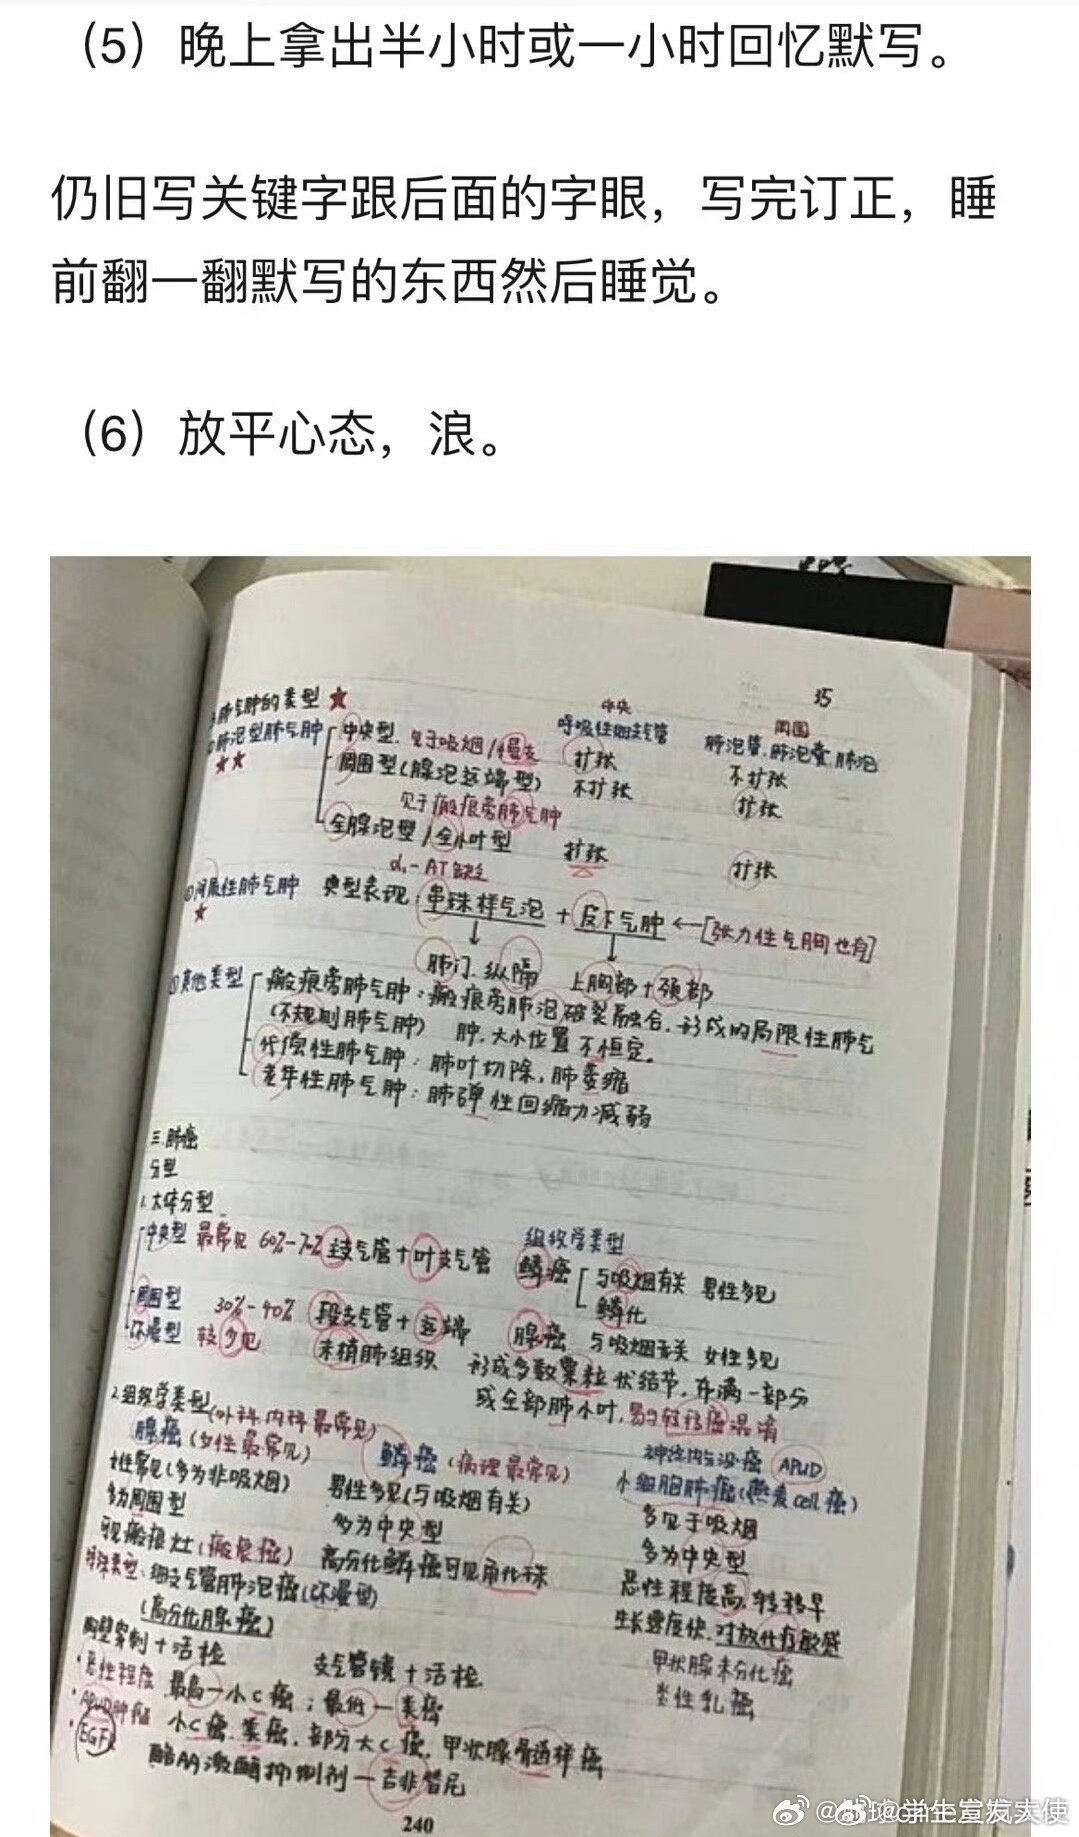 （5）晚上拿出半小时或一小时回忆默写。
仍旧写关键字跟后面的字眼，写完订正，睡
前翻一翻默写的东西然后睡觉。
（6）放平心态，浪。
35
肺气肿的类型 ★
中央 周围
呼吸性细支气管 肺泡管.肺泡囊.肺泡
肺泡型肺气肿 中央型. 见于吸烟/慢支 扩张 不扩张
★★
周围型(腺泡远端型) 不扩张 扩张
见于瘢痕旁肺气肿
全腺泡型/全小叶型 扩张 扩张
α₁-AT缺乏
间质性肺气肿 典型表现：串珠样气泡 + 皮下气肿 ←[张力性气胸也有]
★ ↓ ↓
肺门.纵隔 上胸部+颈部
其他类型 瘢痕旁肺气肿：瘢痕旁肺泡破裂融合，形成的局限性肺气
(不规则肺气肿) 肿，大小位置不恒定。
代偿性肺气肿：肺叶切除，肺萎缩
老年性肺气肿：肺弹性回缩力减弱
三.肺癌
分型
1.大体分型
中央型 最常见 60%-70% 主支气管+叶支气管
组织学类型
鳞癌 与吸烟有关 男性多见
鳞化
周围型 30%-40% 段支气管+远端
腺癌 与吸烟无关 女性多见
弥漫型 较少见 末梢肺组织 形成多数粟粒状结节，布满一部分
或全部肺小叶，易与转移癌混淆
2.组织学类型(外科.内科最常见)
腺癌(女性最常见) 鳞癌(病理最常见) 神经内分泌癌 APUD
女性常见(多为非吸烟) 男性多见(与吸烟有关) 小细胞肺癌(燕麦cell癌)
多为周围型 多为中央型 多见于吸烟
可见瘢痕灶(瘢痕癌) 高分化鳞癌可见角化珠 多为中央型
特殊类型：细支气管肺泡癌(弥漫型) 恶性程度高，转移早
(高分化腺癌) 生长速度快.对放化疗敏感
胸壁穿刺+活检 支气管镜+活检 甲状腺未分化癌
炎性乳癌
·恶性程度 最高—小C癌；最低—类癌
·APUD肿瘤 小C癌.类癌.部分大C癌.甲状腺髓样癌
·EGFR 酪AA激酶抑制剂—吉非替尼
240
@学生宣发天使